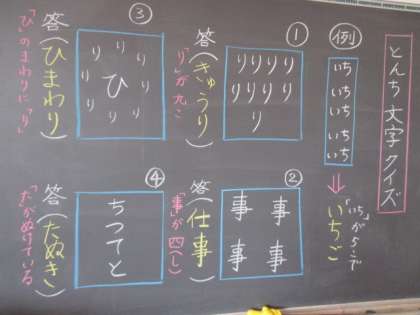 とんち文字クイズ
例
いち
いち
いち
いち
いち
⇒
「いち」が5こで
いちご
①
りりりり
りりりり
り
答(きゅうり)
「り」が九こ
②
事 事
事 事
答(仕事)
「事」が四(し)
③
り り り
り ひ り
り り り
答(ひまわり)
「ひ」のまわりに「り」
④
ちつてと
答(たぬき)
「た」がぬけている